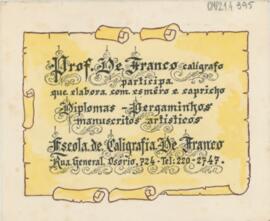 04214395
Prof. De Franco calígrafo
participa
que elabora com esmêro e capricho
Diplomas - Pergaminhos
manuscritos artísticos
Escola de Caligrafia De Franco
Rua General Osório, 724 - Tel: 220-2747.